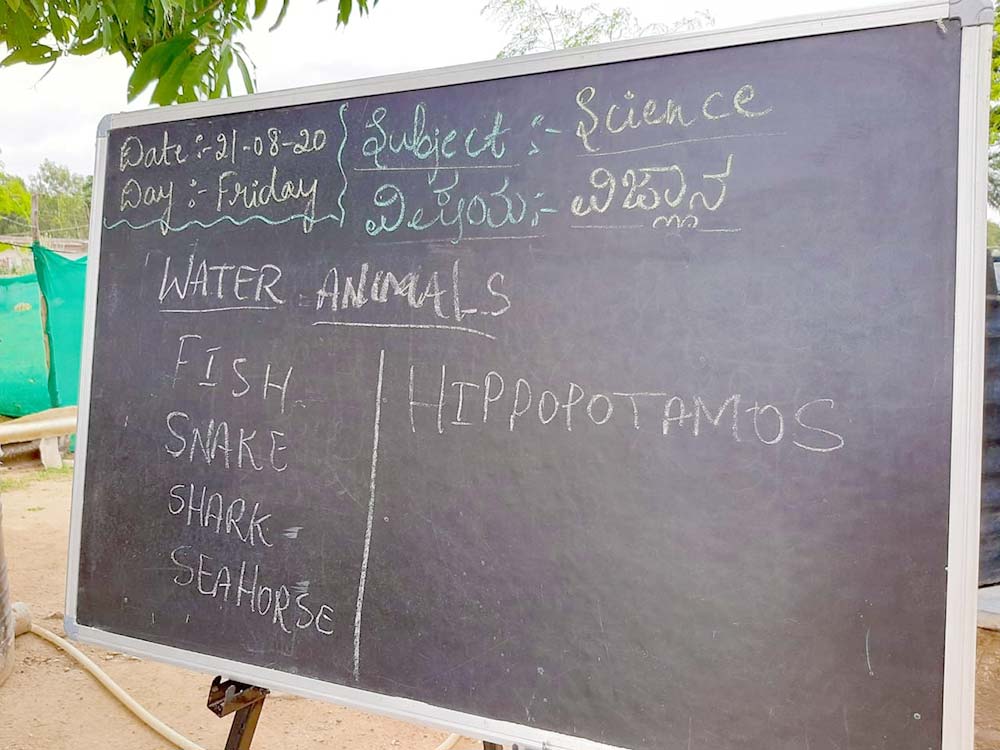 Date :- 21-08-20
Day :- Friday
Subject :- Science
ವಿಷಯ :- ವಿಜ್ಞಾನ
WATER ANIMALS
FISH
SNAKE
SHARK
SEAHORSE
HIPPOPOTAMOS